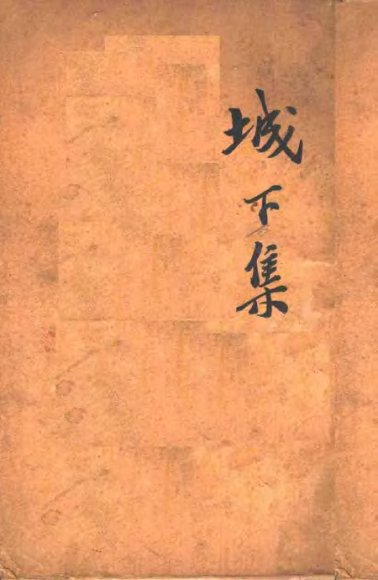 城下集